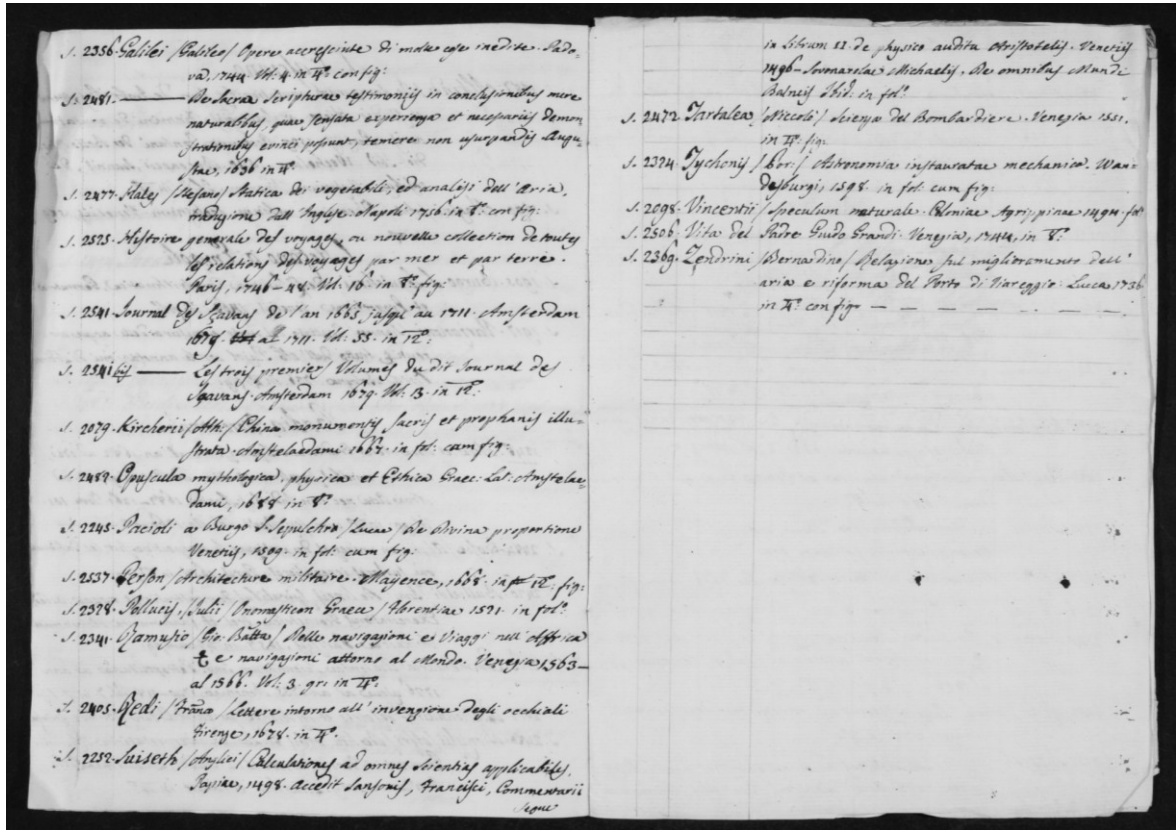 S. 2356. Galilei /Galileo/ Opere accresciute di molte cose inedite. Pado-
va, 1744. Vol: 4. in 4º: con fig:
S. 2481. ——— De Sacrae Scripturae testimonijs in conclusionibus mere
naturalibus, quae sensata experienza et necessarijs demon
strationibus evinci possunt, temere non usurpandis Augu-
stae, 1636 in 4º:
S. 2477. Hales /Stefano/ Statica dei vegetabili, ed analisi dell'Aria.
traduzione dall'Inglese. Napoli 1756. in 8º: con fig:
S. 2525. Histoire generale des voyages, ou nouvelle collection de toutes
les relations des voyages par mer et par terre.
Paris, 1746-48. Vol. 16 in 8º: fig:
S. 2541 Journal des Sçavans de l'an 1665 jusqu'au 1711. Amsterdam
1679. al 1711. Vol: 55. in 12º:
S. 2541 bis ——— Les trois premiers Volumes du dit Journal des
Sçavans. Amsterdam 1679. Vol: 3. in 12º:
S. 2079. Kircherii /Ath:/ China monumentis sacris et prophanis illu-
strata. Amstelaedami 1667. in fol: cum fig:
S. 2482. Opuscula mythologica, physica et Ethica Graec: Lat: Amstelae-
dami, 1688 in 8º:
S. 2245. Pacioli a Burgo S. Sepulchro /Luca/ De Divina proportione
Venetijs, 1509. in fol: cum fig:
S. 2537. Person /Architecture militaire. Mayence, 1668. in 12º: fig:
S. 2328. Pollucis, /Julii/ Onomasticon Graece/ Florentiae 1521. in folº.
S. 2341. Ramusio /Gio: Batta/ Delle navigazioni e Viaggi nell'Affrica
e navigazioni attorno al Mondo. Venezia 1563-
al 1566. Vol: 3. gr: in 4º:
S. 2405. Redi /Franco/ Lettere intorno all'invenzione degli occhiali
Firenze, 1678. in 4º.
S. 2252. Suiseth /Anglici/ Calculationes ad omnes scientias applicabiles.
Papiae, 1498. Accedit Sansonis, Francisci, Commentarii
segue
in Librum II. de physico audita Aristotelis. Venetijs
1496- Sovonarolae Michaelis, De omnibus Mundi
Balneis Ibid. in folº.
S. 2472. Tartalea /Niccolì/ Scienza del Bombardiere. Venezia 1551.
in 4º: fig:
S. 2324. Tychonis /bor:/ Astronomiae instauratae mechanica. Wan-
desburgi, 1598. in fol: cum fig:
S. 2098. Vincentii /Speculum naturale. Coloniae Agrippinae 1494. folº
S. 2506. Vita del Padre Guido Grandi. Venezia, 1744, in 8º:
S. 2369. Zendrini /Bernardino/ Relazione sul miglioramento dell'
aria e riforma del Porto di Viareggio. Lucca 1736
in 4º: con fig. — — — — — —